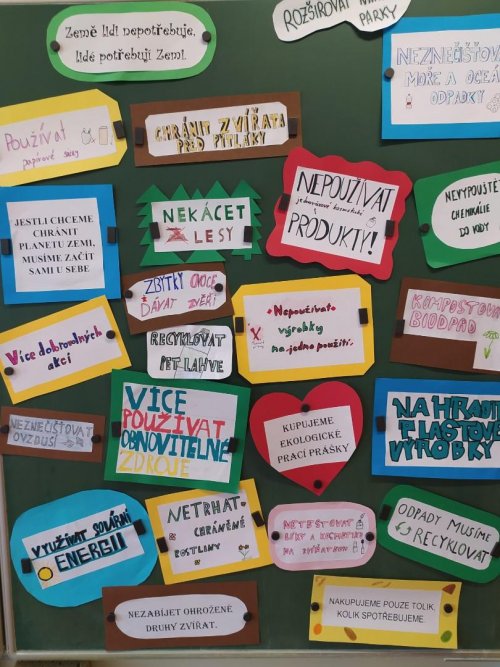 Země lidi nepotřebuje,
lidé potřebují Zemi.
ROZŠIŘOVAT
PARKY
NEZNEČIŠŤOVA
MOŘE A OCEÁ
ODPADKY
Používat
papírové sáčky
CHRÁNIT ZVÍŘATA
PŘED PYTLÁKY
JESTLI CHCEME
CHRÁNIT
PLANETU ZEMI,
MUSÍME ZAČÍT
SAMI U SEBE
NEKÁCET
LESY
NEPOUŽÍVAT
jednorázové kosmetické
PRODUKTY!
NEVYPOUŠTĚ
CHEMIKÁLIE
DO VODY
ZBYTKY OVOCE
DÁVAT ZVĚŘI
Nepoužívat
výrobky
na jedno použití.
KOMPOSTOVA
BIOODPAD
Více dobrovolných
akcí
RECYKLOVAT
PET LAHVE
NEZNEČIŠŤOVAT
OVZDUŠÍ
VÍCE
POUŽÍVAT
OBNOVITELNÉ
ZDROJE
KUPUJEME
EKOLOGICKÉ
PRACÍ PRÁŠKY
NAHRADIT
PLASTOVÉ
VÝROBKY
VYUŽÍVAT SOLÁRNÍ
ENERGII
NETRHAT
CHRÁNĚNÉ
ROSTLINY
NETESTOVAT
LÉKY A KOSMETIKU
NA ZVÍŘATECH
ODPADY MUSÍME
RECYKLOVAT
NEZABÍJET OHROŽENÉ
DRUHY ZVÍŘAT.
NAKUPUJEME POUZE TOLIK,
KOLIK SPOTŘEBUJEME.